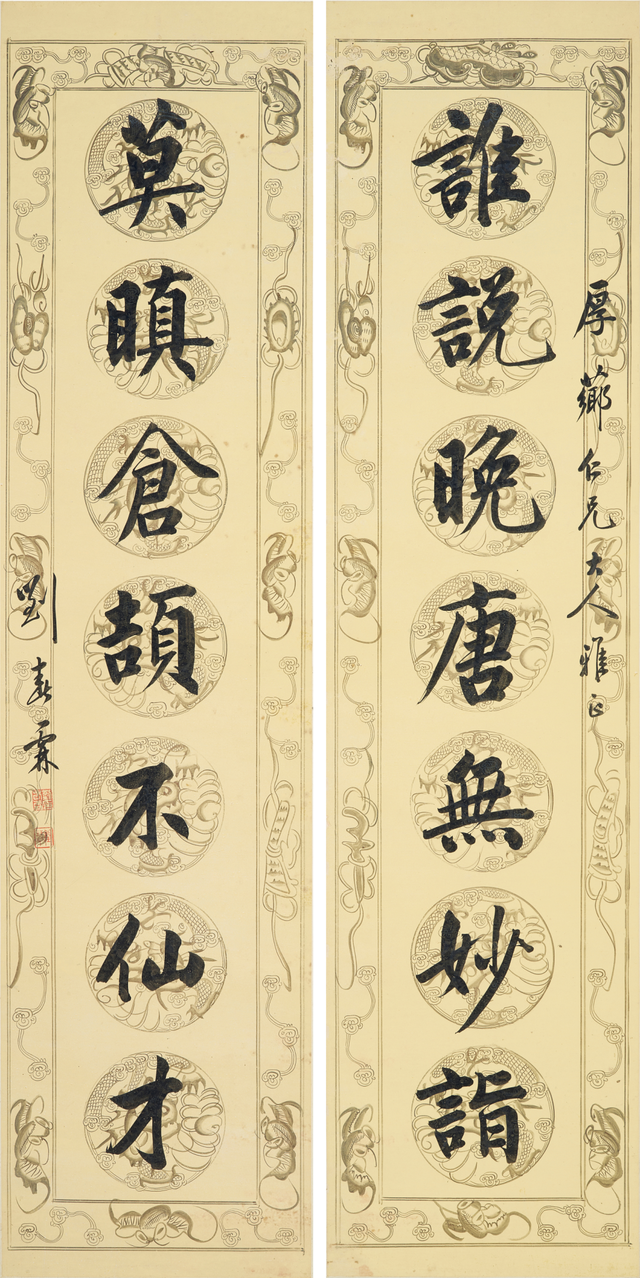 厚薌仁兄大人雅正
誰説晚唐無妙詣
莫瞋倉頡不仙才
劉春霖